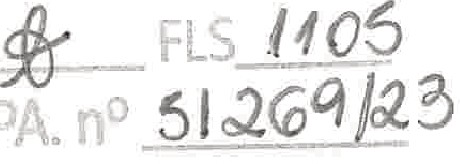 FLS 1105
PA. nº 51269/23